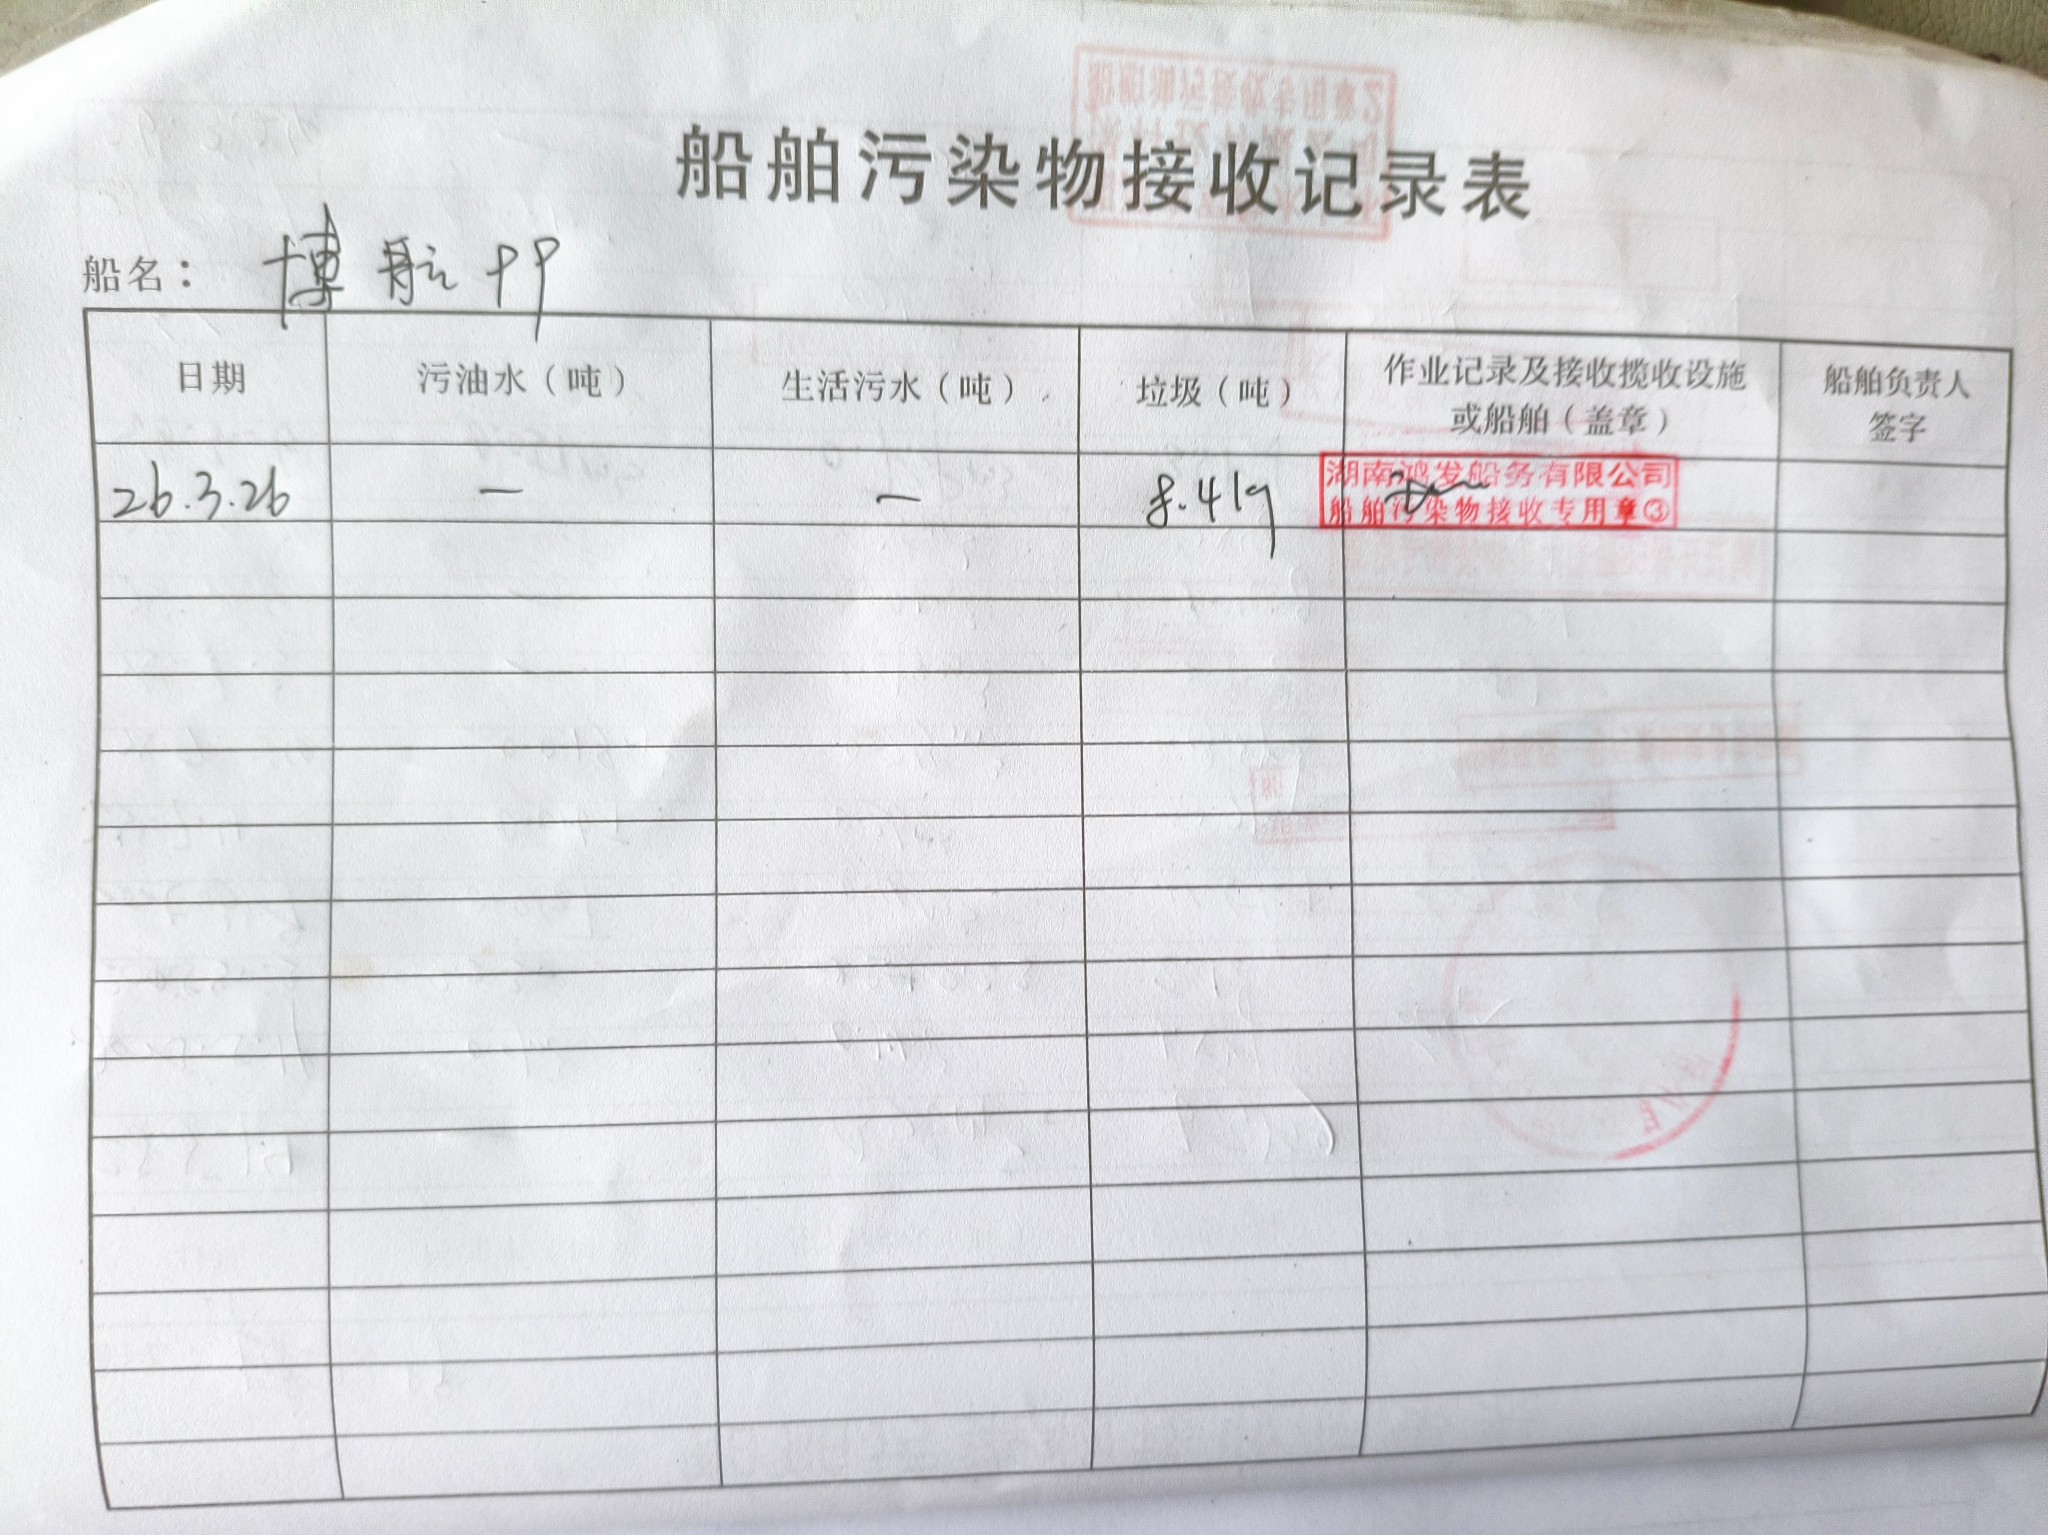 船舶污染物接收记录表
船名： 博航
日期 污油水（吨） 生活污水（吨） 垃圾（吨） 作业记录及接收揽收设施或船舶（盖章） 船舶负责人签字
26.3.26 — — 8.419
湖南鸿发船务有限公司
船舶污染物接收专用章③